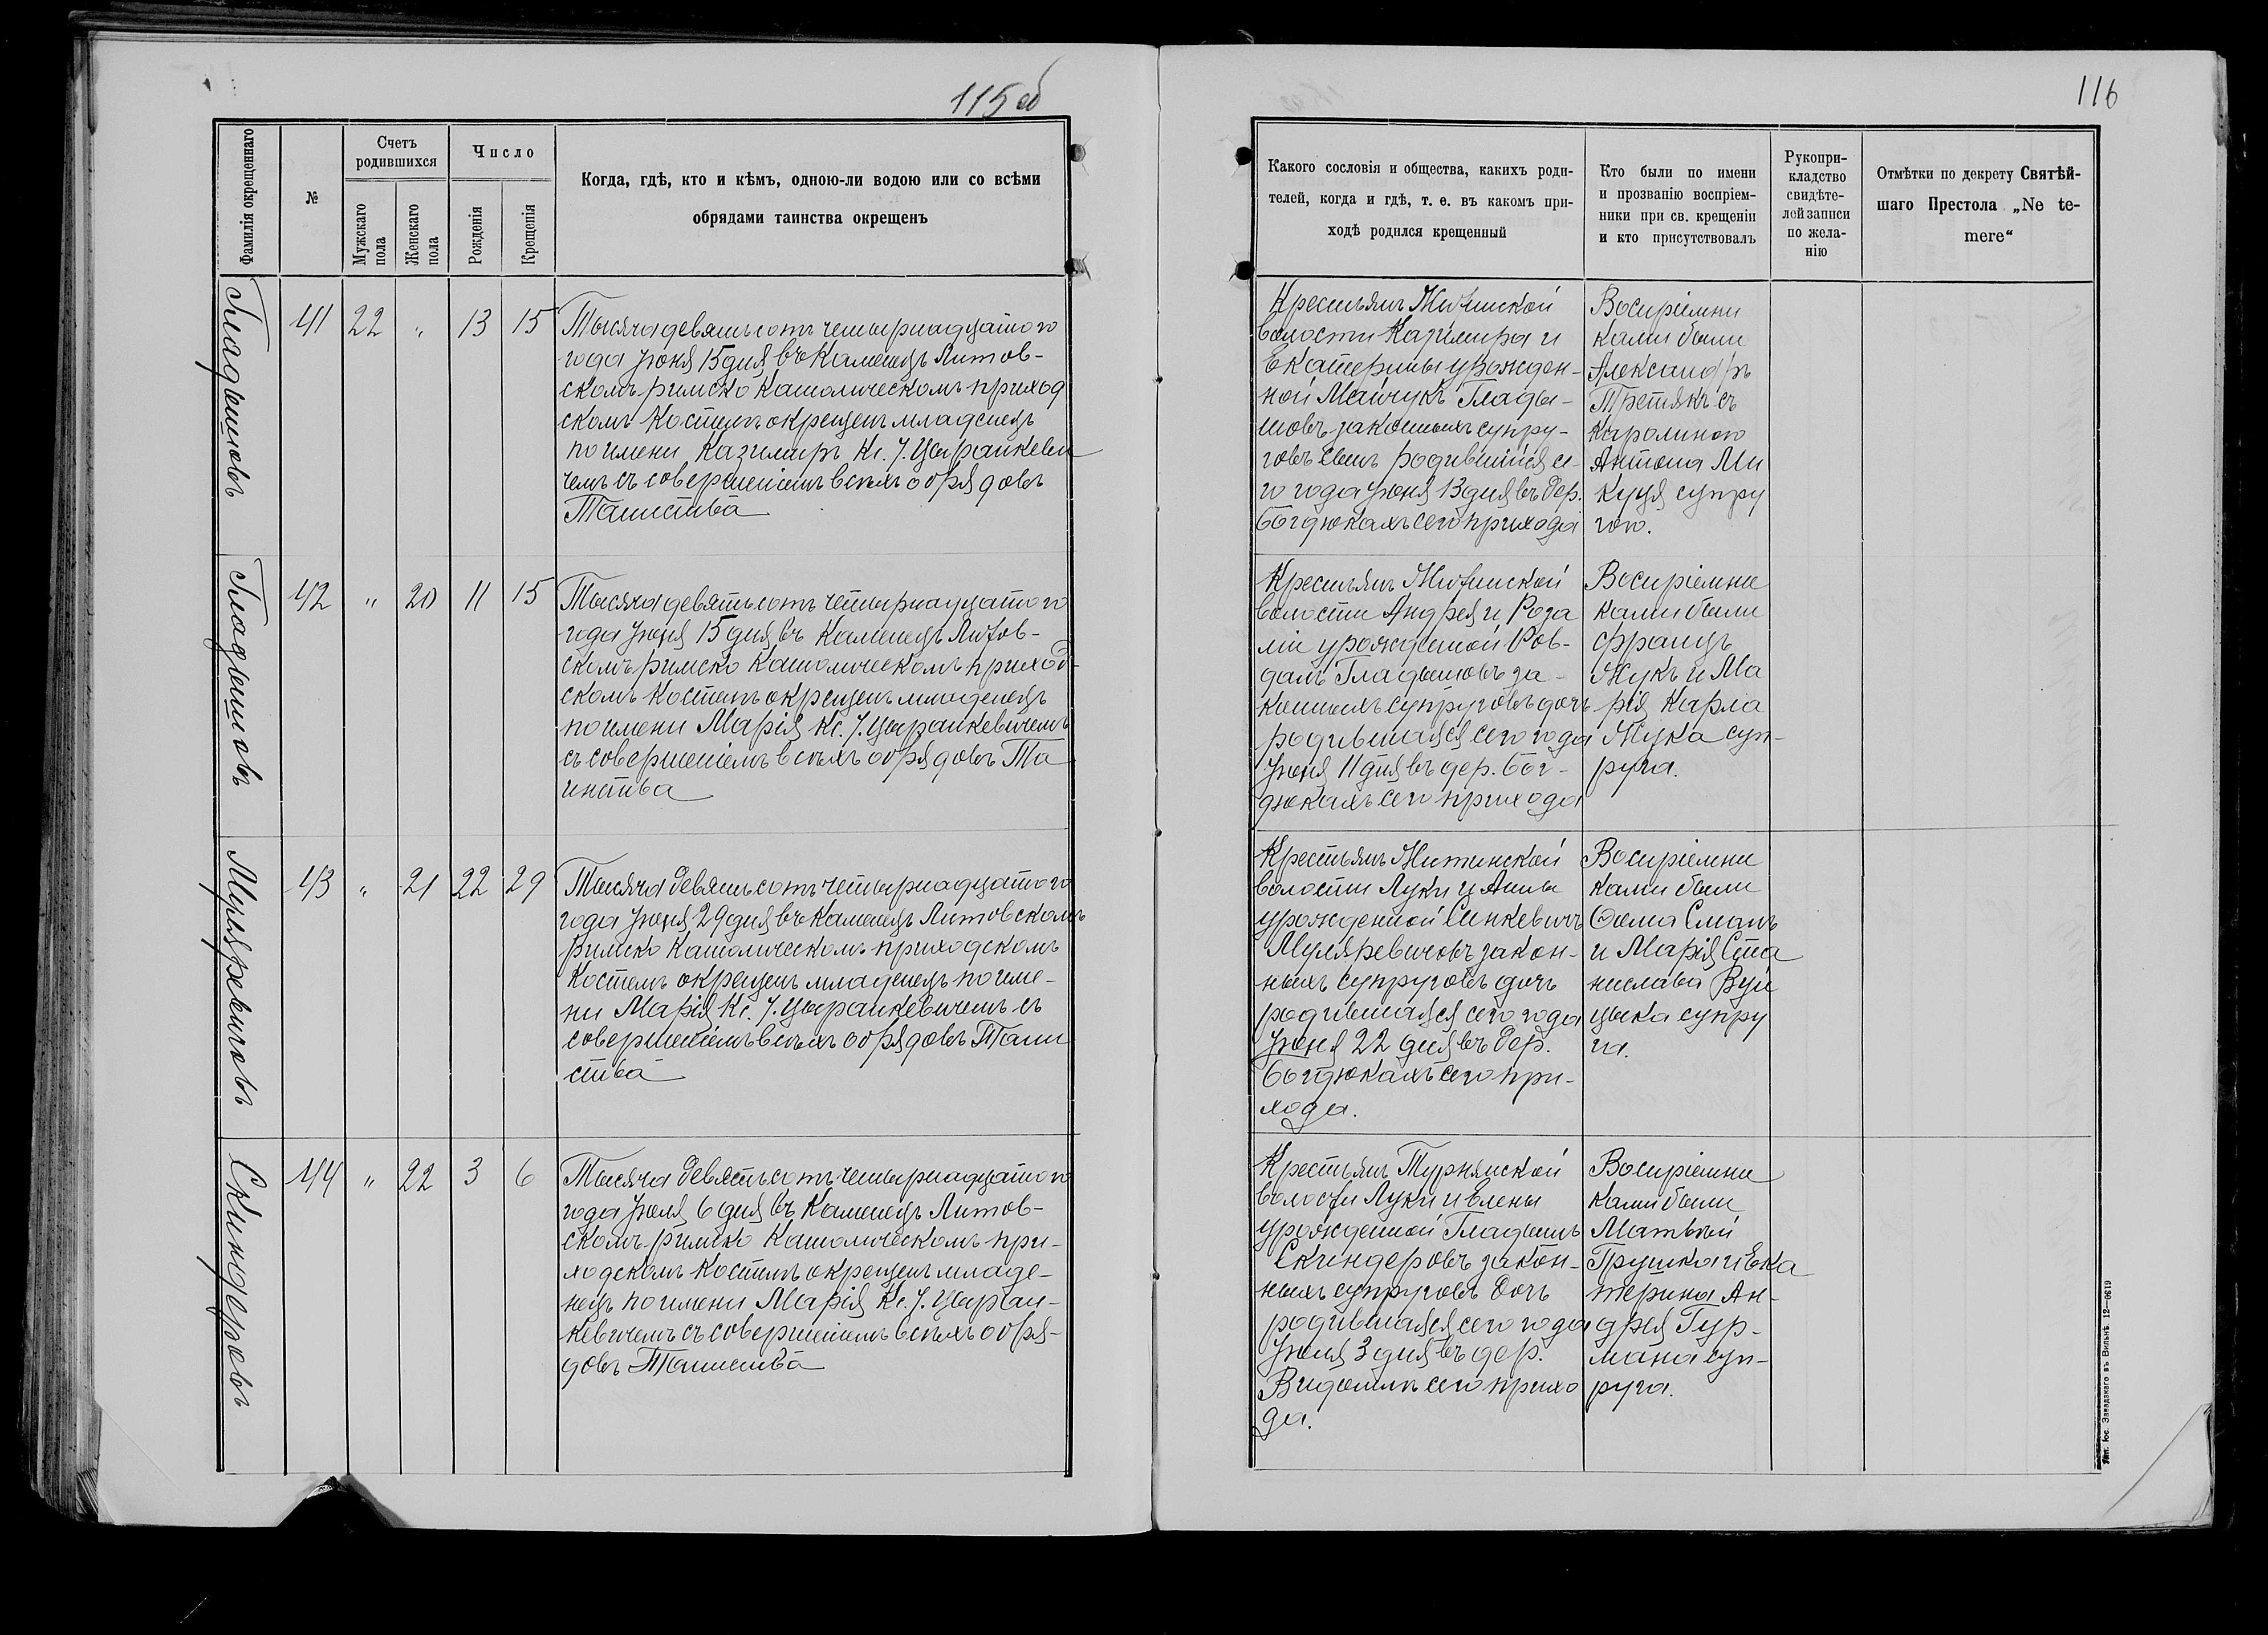 115 об
Фамилія окрещеннаго
№
Счетъ
родившихся
Мужскаго
пола
Женскаго
пола
Число
Рожденія
Крещенія
Когда, гдѣ, кто и кѣмъ, одною-ли водою или со всѣми
обрядами таинства окрещенъ
Гладышовъ
41 22 „ 13 15
Тысяча девятьсотъ четырнадцатого
года Іюня 15 дня въ Каменецъ Литов-
скомъ римско Католическомъ приход
скомъ Костелѣ окрещенъ младенецъ
по имени Казимиръ Кс. І. Цыранкеви
чемъ съ совершеніемъ всѣхъ обрядовъ
Таинства
Гладышовъ
42 „ 20 11 15
Тысяча девятьсотъ четырнадцатого
года Іюня 15 дня въ Каменецъ Литов-
скомъ римско Католическомъ приход-
скомъ Костелѣ окрещенъ младенецъ
по имени Марія Кс. І. Цыранкевичемъ
съ совершеніемъ всѣхъ обрядовъ Та
инства
Муляревичовъ
43 „ 21 22 29
Тысяча девятьсотъ четырнадцатого
года Іюня 29 дня въ Каменецъ Литовскомъ
Римско Католическомъ приходскомъ
Костелѣ окрещенъ младенецъ по име-
ни Марія Кс. І. Цыранкевичемъ съ
совершеніемъ всѣхъ обрядовъ Таин
ства
Скиндеровъ
44 „ 22 3 6
Тысяча девятьсотъ четырнадцатого
года Іюля 6 дня въ Каменецъ Литов-
скомъ римско Католическомъ при-
ходскомъ Костелѣ окрещенъ младе-
нецъ по имени Марія Кс. І. Цыран-
кевичемъ съ совершеніемъ всѣхъ обря-
довъ Таинства
116
Какого сословія и общества, какихъ роди-
телей, когда и гдѣ, т. е. въ какомъ при-
ходѣ родился крещенный
Кто были по имени
и прозванію воспріем-
ники при св. крещеніи
и кто присутствовалъ
Рукопри-
кладство
свидѣте-
лей записи
по жела-
нію
Отмѣтки по декрету Святѣй-
шаго Престола „Ne te-
mere“
Крестьянъ Житинской
волости Казимира и
Екатерины урожден-
ной Майчукъ Глады-
шовъ законныхъ супру-
говъ сынъ родившійся се-
го года Іюня 13 дня въ дер.
Богдюкахъ сего прихода
Воспріемни
ками были
Александръ
Третякъ съ
Каролиною
Антона Ми
куця супру
гою.
Крестьянъ Житинской
волости Андрея и Роза
ліи урожденной Ров-
дамъ Гладышовъ за-
конныхъ супруговъ дочь
родившаяся сего года
Іюня 11 дня въ дер. Бог-
дюкахъ сего прихода
Воспріемни
ками были
Францъ
Жукъ и Ма
рія Карла
Жука суп-
руга.
Крестьянъ Житинской
волости Луки и Анны
урожденной Синкевичъ
Муляревичовъ закон-
ныхъ супруговъ дочь
родившаяся сего года
Іюня 22 дня въ дер.
Богдюкахъ сего при-
хода.
Воспріемни
ками были
Ѳома Смаль
и Марія Ста
нислава Вуй
цика супру
га.
Крестьянъ Турнянской
волости Луки и Елены
урожденной Гладышъ
Скиндеровъ закон-
ныхъ супруговъ дочь
родившаяся сего года
Іюля 3 дня въ дер.
Видомлѣ сего прихо
да.
Воспріемни
ками были
Матвѣй
Грушка и Ека
терина Ан-
дрея Гур-
мана суп-
руга.
Тип. Юс. Завадзкаго въ Вильнѣ. 12—0619